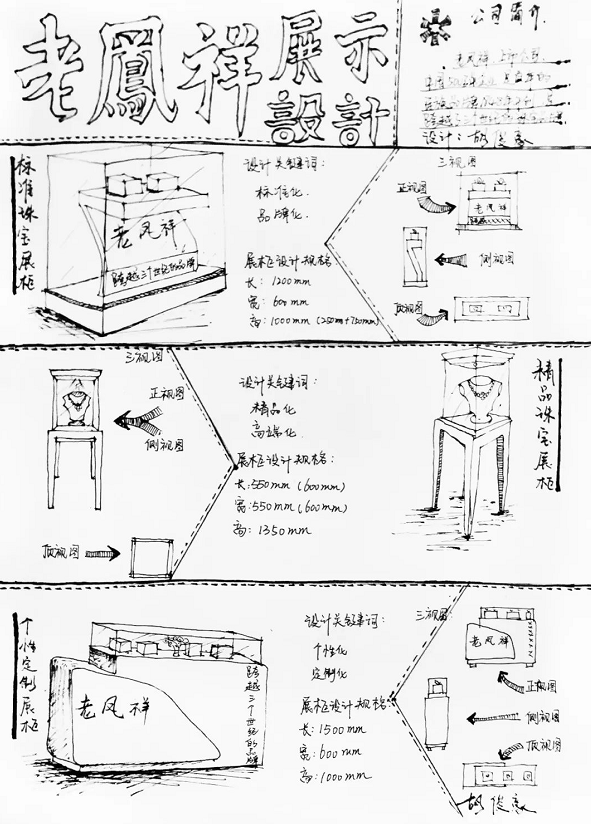 老鳳祥展示
設計
公司简介.
设计：胡俊
标准珠宝展柜
老凤祥
跨越三个世纪的品牌
设计关键词：
标准化.
品牌化.
展柜设计规格
长：1200mm
宽：600mm
高：1000mm (250m+750mm)
三视图
正视图
老凤祥
侧视图
顶视图
三视图
正视图
侧视图
顶视图
设计关键词：
精品化
高端化.
展柜设计规格：
长：550mm (600mm)
宽：550mm (600mm)
高：1350mm
精品珠宝展柜
个性定制展柜
老凤祥
跨越三个世纪的品牌
设计关键词：
个性化
定制化
展柜设计规格
长：1500mm
宽：600mm
高：1000mm
三视图：
老凤祥
正视图
侧视图
顶视图
胡俊